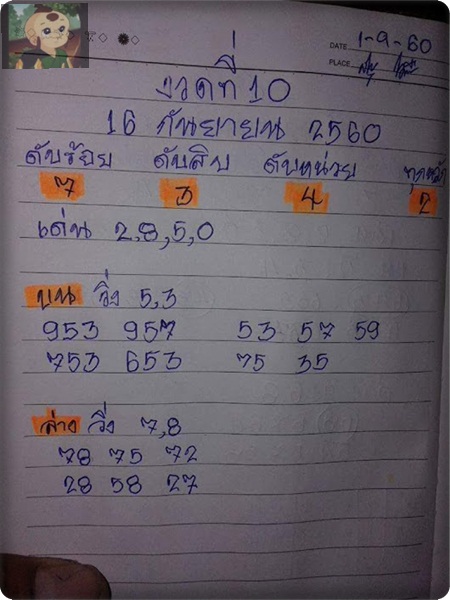 DATE 1-9-60
PLACE
งวดที่ 10
16 กันยายน 2560
ดับร้อย ดับสิบ ดับหน่วย
7 3 4 2
เด่น 2,8,5,0
บน วิ่ง 5,3
953 957 53 57 59
753 653 75 35
ล่าง วิ่ง 7,8
78 75 72
28 58 27